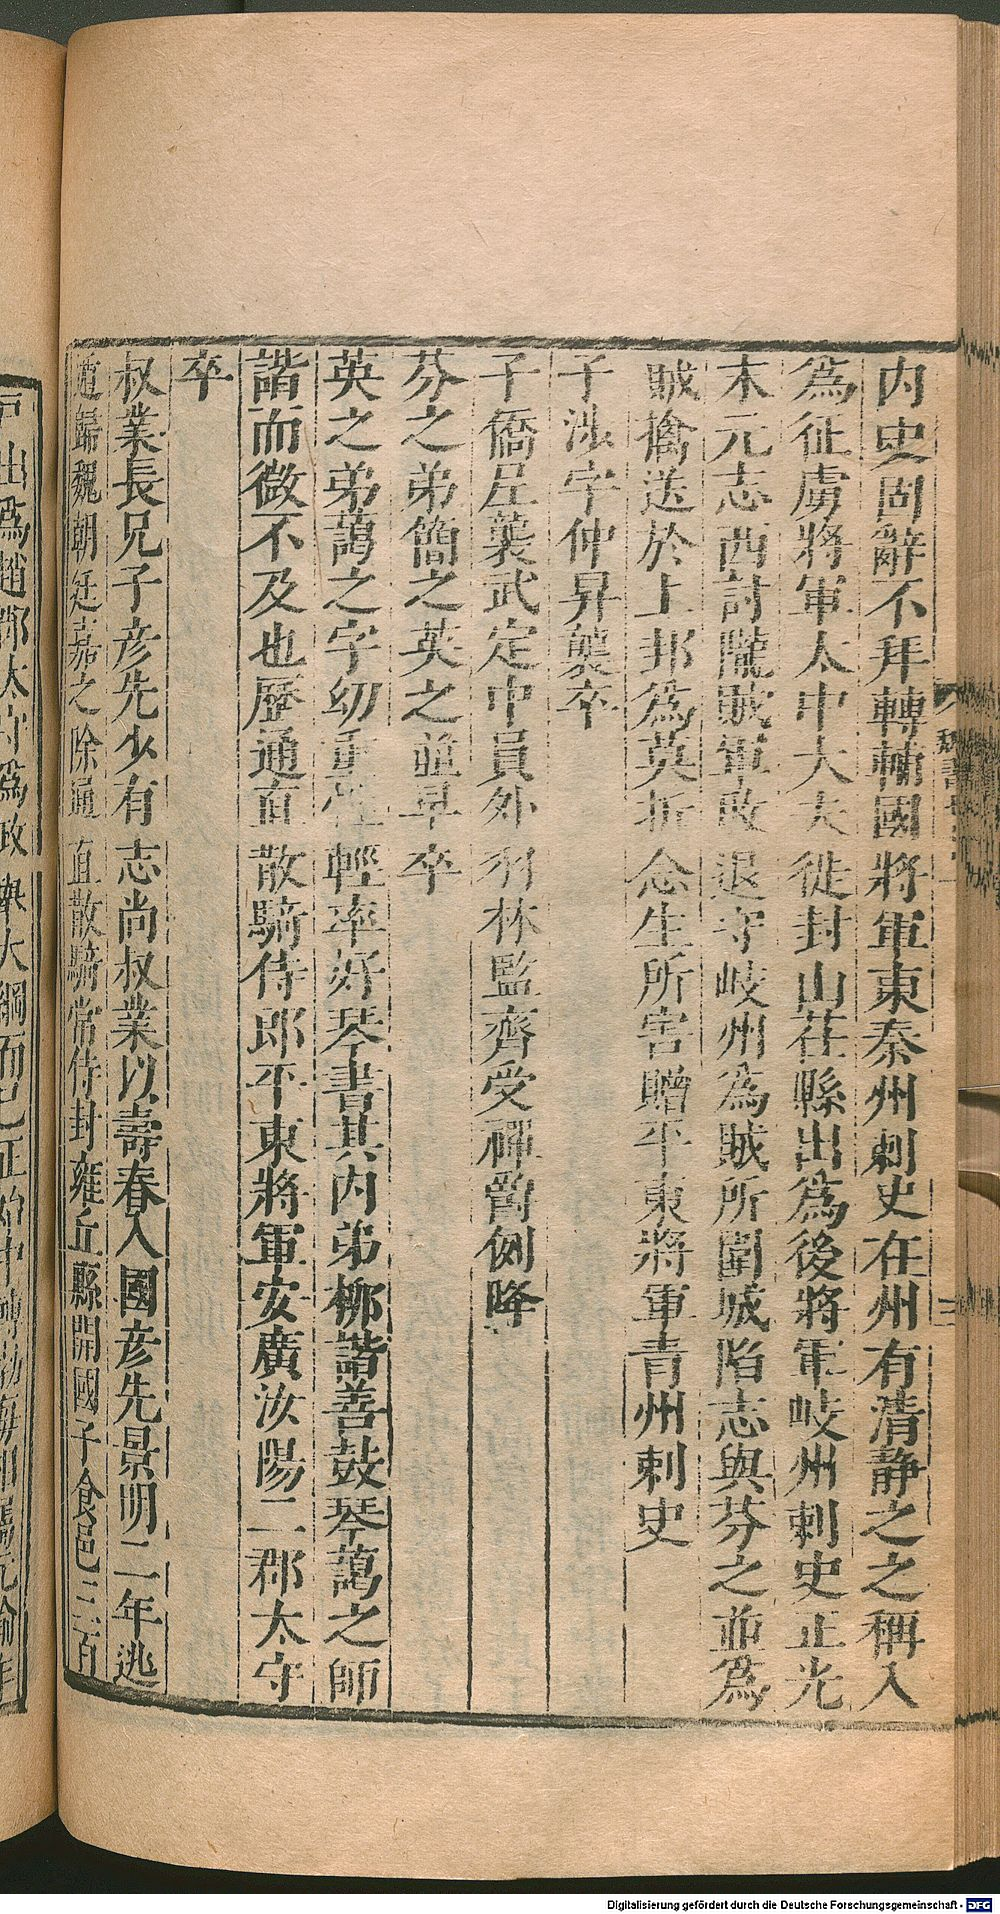 內史固辭不拜轉輔國將軍東秦州刺史在州有清靜之之稱入
為征虜將軍太中大夫徙封山茌縣出為後將軍岐州刺史正光
末元志西討隴賊軍敗退守岐州為賊所圍城陷志與芬之並為
賊擒送於上邽為莫折念生所害贈平東將軍青州刺史
子涉字仲昇襲卒
子僑尼襲武定中員外羽林監齊受禪爵例降
芬之弟簡之英之並早卒
英之弟藹之字幼重性輕率好琴書其內弟柳諧善鼓琴藹之師
諧而微不及也歷通直散騎侍郎平東將軍安廣汝陽二郡太守
卒
叔業長兄子彥先少有志尚叔業以壽春入國彥先景明二年逃
遁歸魏朝廷嘉之除通直散騎常侍封雍丘縣開國子食邑三百
戶出為趙郡太守為政舉大綱而已正始中轉渤海相屬元愉
Digitalisierung gefördert durch die Deutsche Forschungsgemeinschaft - DFG